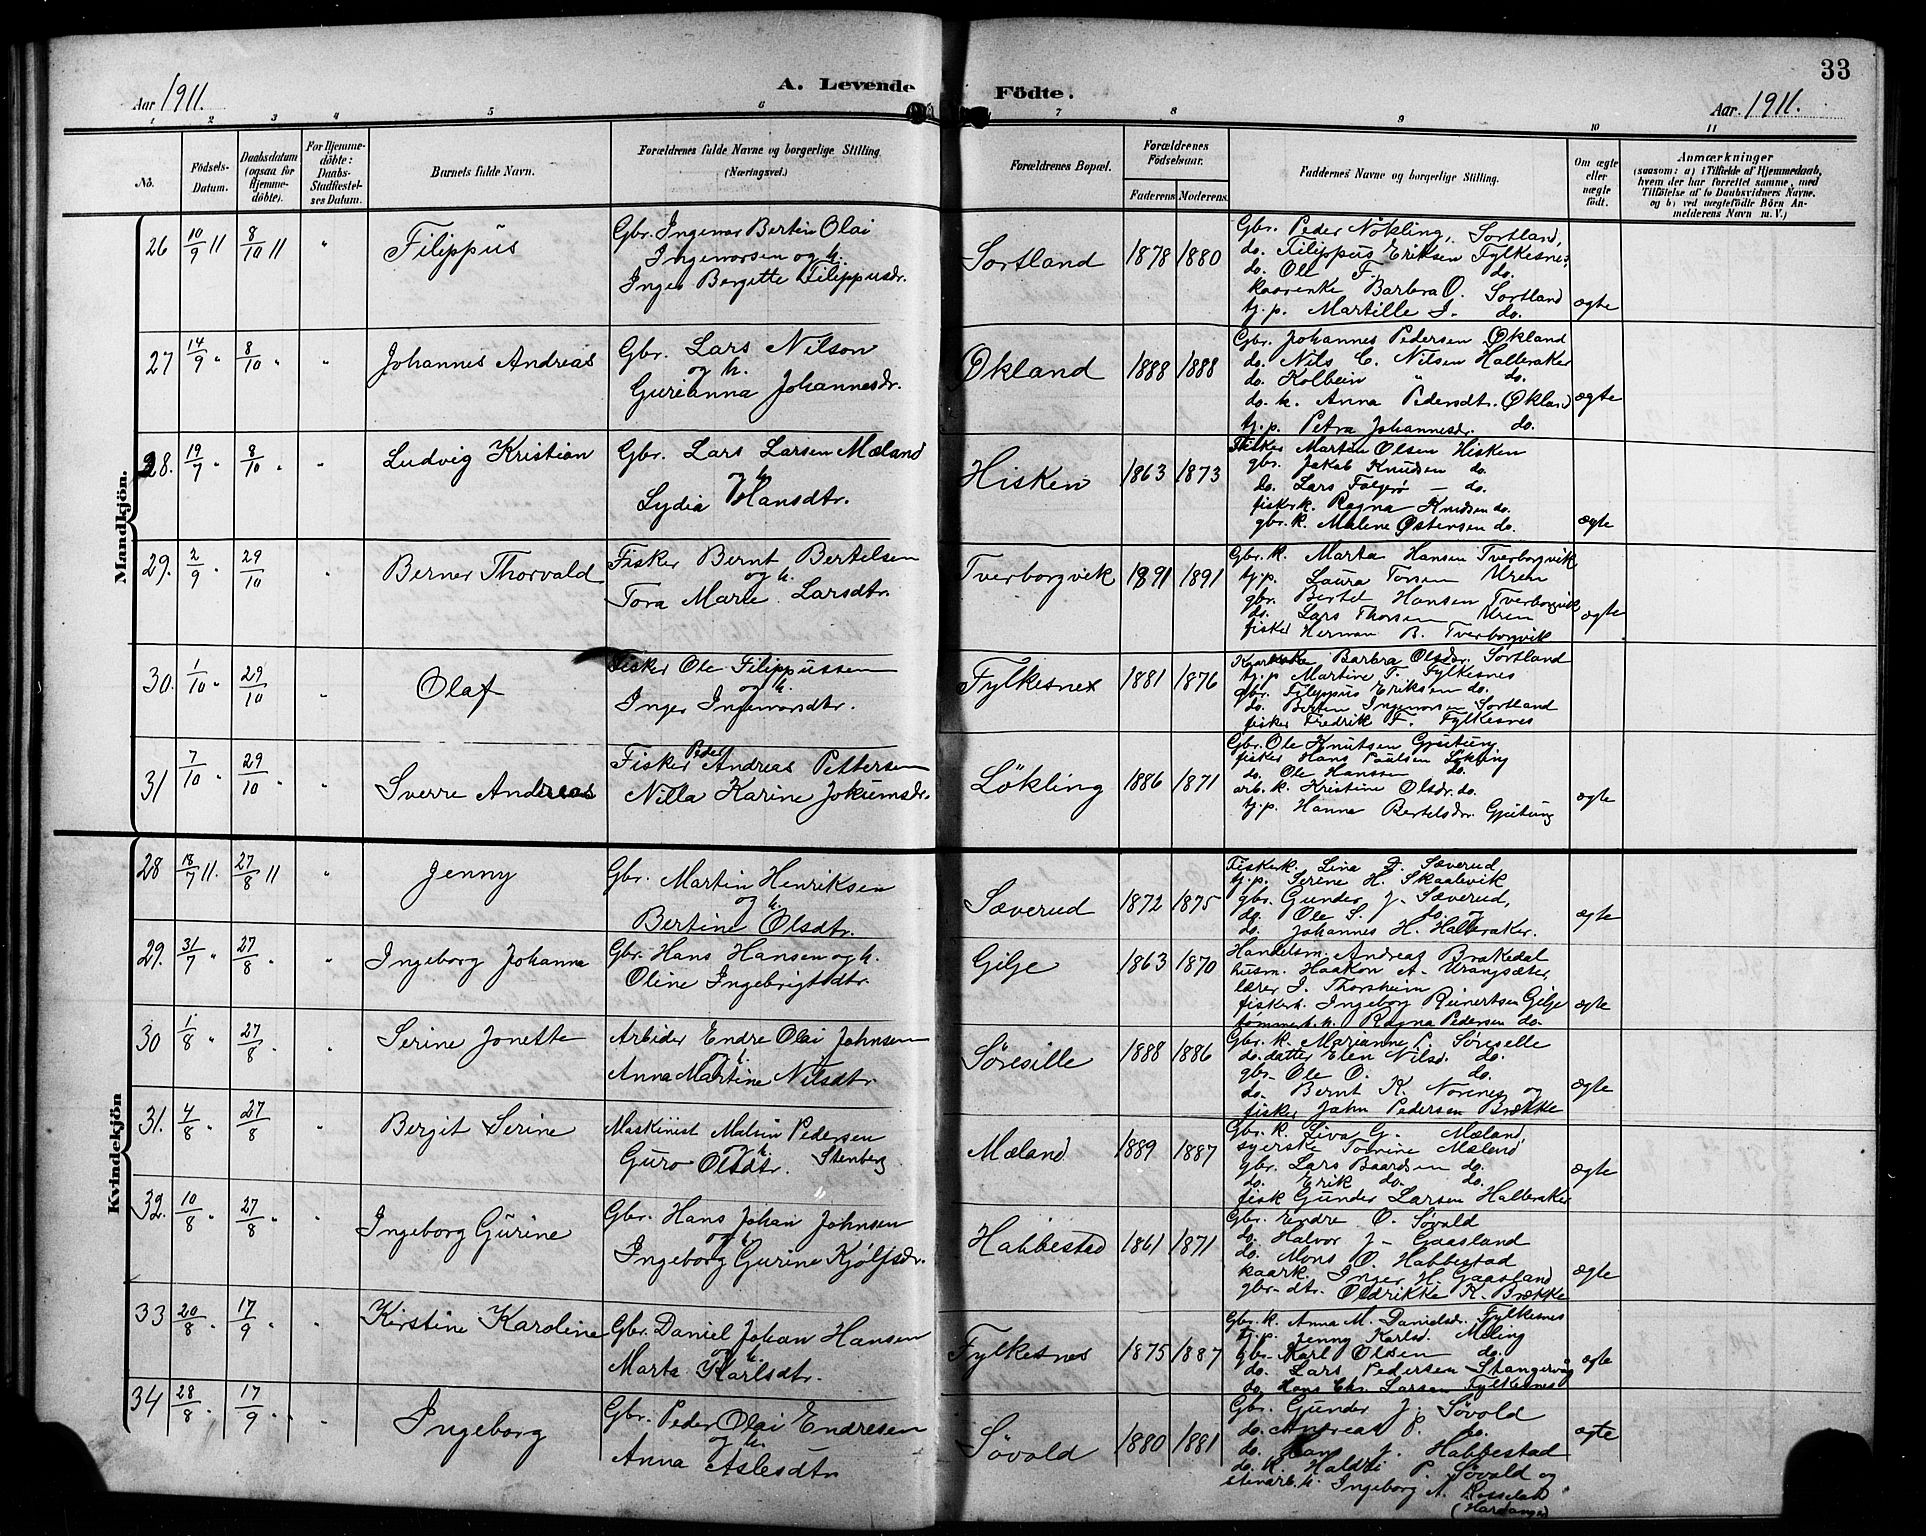 33
Aar 1911.
A. Levende Födte.
Aar 1911.
1 2 3 4 5 6 7 8 9 10 11
No.
Födsels-Datum.
Daabsdatum (ogsaa for Hjemmedöbte).
For Hjemmedöbte: Daabs-Stadfæstelses Datum.
Barnets fulde Navn.
Forældrenes fulde Navne og borgerlige Stilling
(Næringsvei.)
Forældrenes Bopæl.
Forældrenes Födselsaar.
Faderens Moderens
Faddernes Navne og borgerlige Stilling.
Om ægte eller nægte födt.
Anmærkninger
(saasom: a) i Tilfælde af Hjemmedaab, hvem der har forrettet samme, med Tilföielse af to Daabsvidners Navne. og b) ved uægtefödte Börn Anmelderens Navn m. V.)
Mandkjön.
26 10/9 11 8/10 11 " Filippus
Gbr. Ingemar Bertin Olai
Ingemorsen og h.
Inger Bergitte Filippusdr.
Sortland 1878 1880
Gbr. Peder Nökling, Sortland,
do. Filippus Eriksen Fylkesnes
do. Ole F. do.
kaarenke Barbra O. Sortland
tj.p. Martille I. do.
ægte
27 14/9 " 8/10 " " Johannes Andreas
Gbr. Lars Nilson
og h.
Gurianna Johannesdr.
Økland 1888 1888
Gbr. Johannes Pedersen Økland
do. Nils C. Nilsen Halleraker
do. Kolbein " do.
do. k. Anna Pedersdtr. Økland
tj.p. Petra Johannesdr. do.
ægte
28. 19/7 " 8/10 " " Ludvig Kristian
Gbr. Lars Larsen Mæland
og h.
Lydia Hansdtr.
Hisken 1863 1873
Fisker Martin Olsen Hisken
gbr. Jakob Knudsen do.
do. Lars Folgerø - do.
fiskerk. Ragna Knudsen do.
gbr. k. Malene Østensen do.
ægte
29. 2/9 " 29/10 " Berner Thorvald
Fisker Bernt Bertelsen
og h.
Tora Marie Larsdtr.
Tverborgvik 1891 1891
Gbr. k. Marta Hansen Tverborgvik
tj.p. Laura Torsen Uren
gbr. Bertel Hansen Tverborgvik
do. Lars Thorsen Uren
fisker Herman B. Tverborgvik
ægte
30. 1/10 " 29/10 " Olaf
Fisker Ole Filippussen
og h.
Inger Ingemorsdtr.
Fylkesnes 1881 1876
Barbra Olsdr. Sortland
tj.p Martine F. Fylkesnes
gbr. Filippus Eriksen do.
do. Bertin Ingemorsen Sortland
fisker Fredrik F. Fylkesnes
31 7/10 " 29/10 " " Sverre Andreas
Peder
Fisker Andreas Pettersen
Nilla Karine Jokumsdr.
Løkling 1886 1871
Gbr. Ole Knutsen Gjeitung
fisker Hans Paulsen Løkling
do. Ole Hanssen do.
arb. k. Kristine Olsdr. do.
tj.p. Hanna Bertelsdr. Gjeitung
ægte
Kvindekjön
28 18/7 11. 27/8 11 " Jenny
Gbr. Martin Henriksen
og h.
Bertine Olsdtr.
Sæverud 1872 1875
Fiskerk. Lina J. Sæverud
tj.p. Serine H. Skaalevik
gbr. Gunder J. Sæverud,
do. Ole S. do. og
do. Johannes H. Halleraker.
ægte
29. 31/7 " 27/8 " " Ingeborg Johanna
Gbr. Hans Hansen og h.
Oline Ingebrigtsdtr.
Gilje 1863 1870
Handelsm. Andreas Brakedal
husm. Haakon A. Urangsæter,
lærer J. Thorsheim
fiskerh. Ingeborg Reinertsen Gilje
tømmerh. k. Ragna Pedersen do.
ægte
30 1/8 " 27/8 " " Serine Jonette
Arbeider Endre Olai Johnsen
og h.
Anna Martine Nilsdtr.
Søresille 1888 1886
Gbr. k. Marianne P. Søreselle
do. datter Elen Nilsd. do.
gbr. Ole O. do.
do. Bernt K. Nornes og
fisker John Pedersen Brække
ægte
31. 4/8 " 27/8 " Bergit Serine
Maskinist Malvin Pedersen
og h.
Guro Olsdtr. Stenberg
Mæland 1889 1887
Gbr. k. Siva G. Mæland,
syerske Tomine Mæland
gbr. Lars Baardsen do.
do. Erik do. do.
fisk Gunder Larsen Halleraker
ægte
32. 10/8 " 27/8 " " Ingeborg Gurine
Gbr. Hans Johan Johnsen
og h.
Ingeborg Gurine Kjølfsdr.
Habbestad 1861 1871
Gbr. Endre O. Søvold
do. Halvor J. Gaasland
do. Mons O. Habbestad
kaark. Inger H. Gaasland
gbr. dtr. Oldrikke K. Brække
ægte
33 20/8 " 17/9 " " Kirstine Karoline
Gbr. Daniel Johan Hansen
og h.
Marta Karlsdtr.
Fylkesnes 1875 1887
Gbr. k. Anna M. Danielsdr. Fylkesnes
tj.p. Jenny Karlsd. Meling
gbr. Karl Olsen do.
do. Lars Pedersen Stangervåg
do. Hans Chr. Larsen Fylkesnes
ægte
34 28/8 " 17/9 " " Ingeborg
Gbr. Peder Olai Endresen
og h.
Anna Aslesdtr.
Søvold 1880 1881
Gbr. Gunder J. Søvold
do. Andreas P. do.
do. Hans J. Habbestad
do. k. Haldri P. Søvold og
stenarb. h. Ingeborg A.
(Hardanger)
ægte